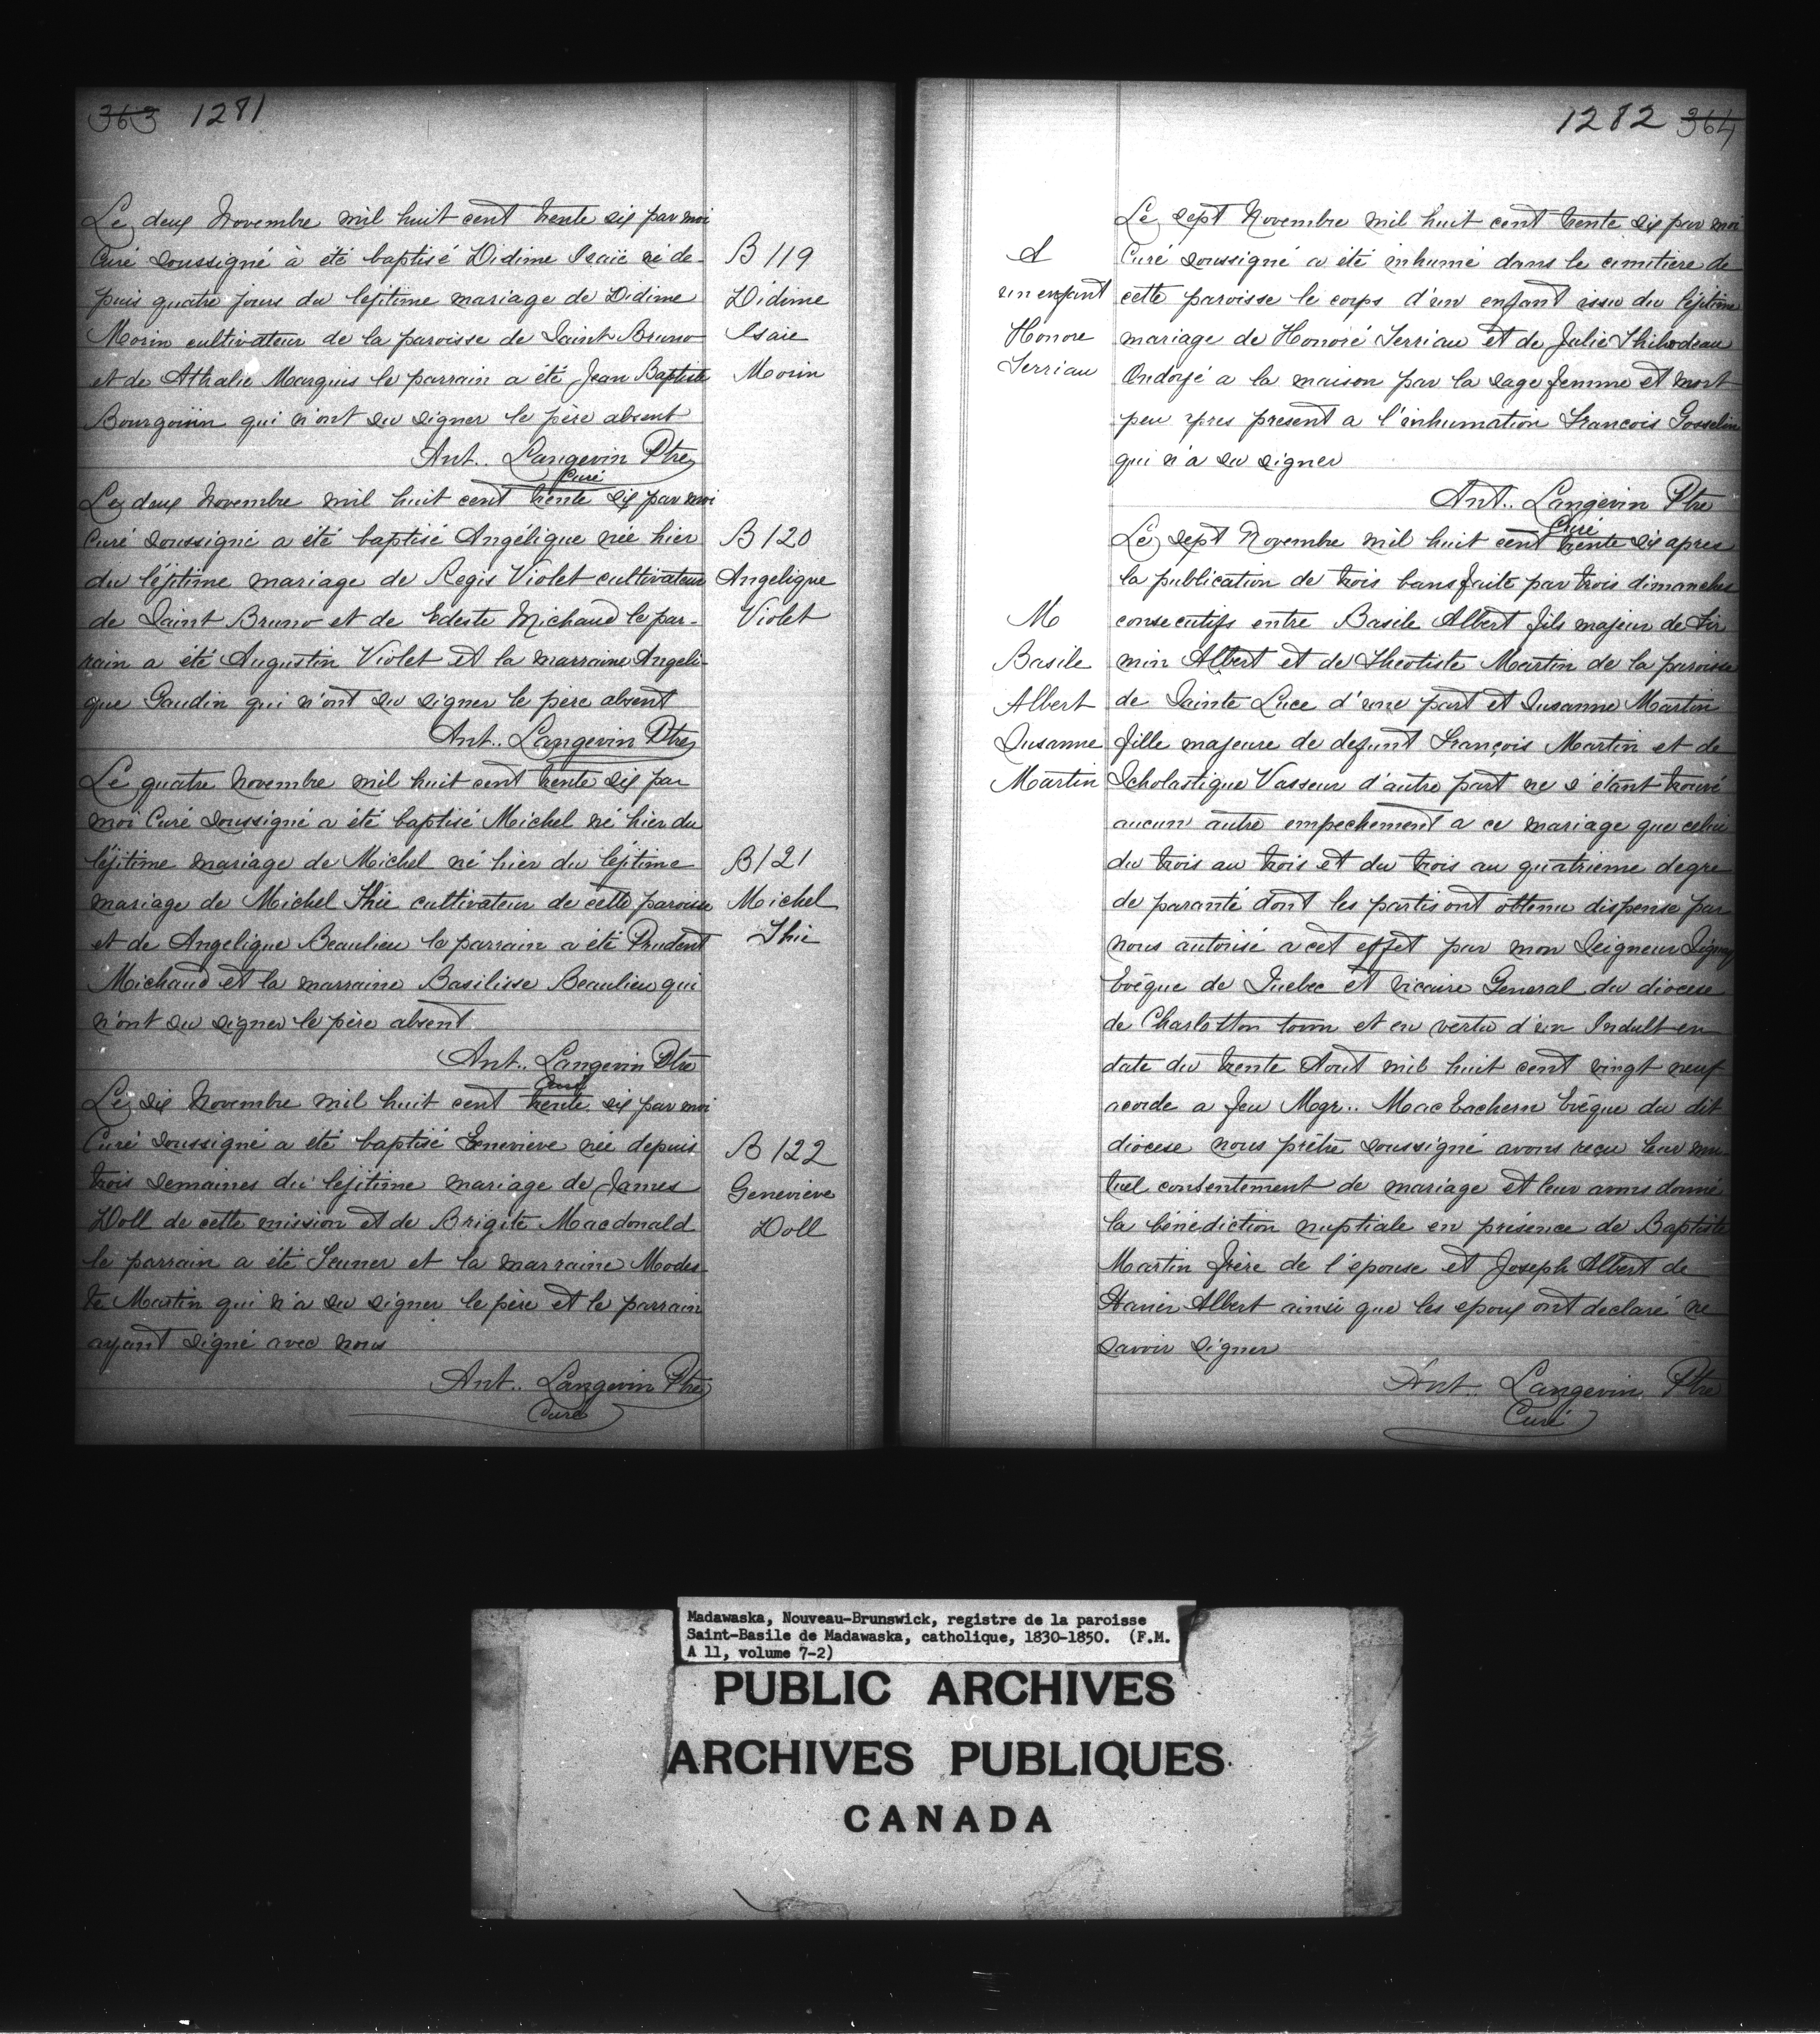 363 1281
Le deux Novembre mil huit cent trente six par moi
Curé soussigné à été baptisé Didime Isaïe né de-
puis quatre jours du léjitime mariage de Didime
Morin cultivateur de la paroisse de Saint Bruno
et de Athalie Marquis le parrain a été Jean Baptiste
Bourgoin qui n'ont su signer le père absent
Ant.. Langevin Ptre
Curé
B 119
Didime
Isaie
Morin
Le deux Novembre mil huit cent trente six par moi
Curé soussigné a été baptisé Angélique née hier
du léjitime mariage de Regis Violet cultivateur
de Saint Bruno et de Edeste Michaud le par-
rain a été Augustin Violet et la marraine Angeli-
que Gaudin qui n'ont su signer le père absent
Ant.. Langevin Ptre
B 120
Angelique
Violet
Le quatre Novembre mil huit cent trente six par
moi Curé soussigné a été baptisé Michel né hier du
léjitime mariage de Michel né hier du léjitime
mariage de Michel Thie cultivateur de cette paroisse
et de Angelique Beaulieu le parrain a été Prudent
Michaud et la marraine Basilisse Beaulieu qui
n'ont su signer le père absent
Ant.. Langevin Ptre
Curé
B 121
Michel
Thie
Le six Novembre mil huit cent trente six par moi
Curé soussigné a été baptisé Genevieve née depuis
trois semaines du léjitime mariage de James
Doll de cette mission et de Brigite Macdonald
le parrain a été et la marraine Modes-
te Martin qui n'a su signer le père et le parrain
ayant signé avec nous
Ant.. Langevin Ptre
Curé
B 122
Genevieve
Doll
1282 364
Le sept Novembre mil huit cent trente six par moi
Curé soussigné a été inhumé dans le cimitiere de
cette paroisse le corps d'un enfant issu du léjitime
mariage de Honoré Terriau et de Julie Thibodeau
Ondoyé a la maison par la sage femme et mort
peu apres present a l'inhumation Francois Gosselin
qui n'a su signer
Ant.. Langevin Ptre
Curé
S
un enfant
Honore
Terriau
Le sept Novembre mil huit cent trente six apres
la publication de trois bans faite par trois dimanches
consecutifs entre Basile Albert fils majeur de Fir
min Albert et de Theotiste Martin de la paroisse
de Sainte Luce d'une part et Susanne Martin
fille majeure de defunt François Martin et de
Scholastique Vasseur d'autre part ne s'étant trouvé
aucun autre empechement a ce mariage que celui
du trois au trois et du trois au quatrieme degre
de paranté dont les partis ont obtenu dispense par
nous autorisé a cet effet par mon Seigneur Signay
Evêque de Quebec et vicaire General du diocese
de Charlotton town et en vertu d'un Indult en
date du trente Aout mil huit cent vingt neuf
acorde a feu Mgr.. Mac Eachern Evêque du dit
diocese nous prêtre soussigné avons reçu leur mu-
tuel consentement de mariage et leur avons donné
la bénédiction nuptiale en présence de Baptiste
Martin frère de l'épouse et Joseph Albert de
Albert ainsi que les epoux ont declaré ne
savoir signer
Ant.. Langevin Ptre
Curé
M
Basile
Albert
Susanne
Martin
Madawaska, Nouveau-Brunswick, registre de la paroisse
Saint-Basile de Madawaska, catholique, 1830-1850. (F.M.
A 11, volume 7-2)
PUBLIC ARCHIVES
ARCHIVES PUBLIQUES
CANADA